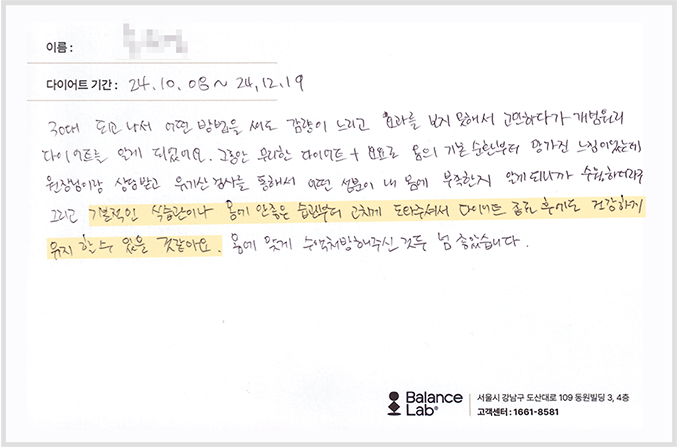 이름 :
다이어트 기간 : 24. 10. 08 ~ 24. 12. 19
30대 되고 나서 어떤 방법을 써도 감량이 느리고 효과를 보지 못해서 고민하다가
다이어트를 알게 되었어요. 그동안 무리한 다이어트 + 요요로 몸의 기본 순환부터 망가진 느낌이었는데
원장님이랑 상담받고 유기산 검사를 통해서 어떤 성분이 내 몸에 부족한지 알게 되니까
그리고 기본적인 식습관이나 몸에 안좋은 습관부터 고치게 도와주셔서 다이어트 종료 후에도 건강하게
유지 할 수 있을 것같아요. 몸에 맞게 수액처방해주신 것두 넘 좋았습니다.
Balance Lab®
서울시 강남구 도산대로 109 동원빌딩 3, 4층
고객센터 : 1661-8581